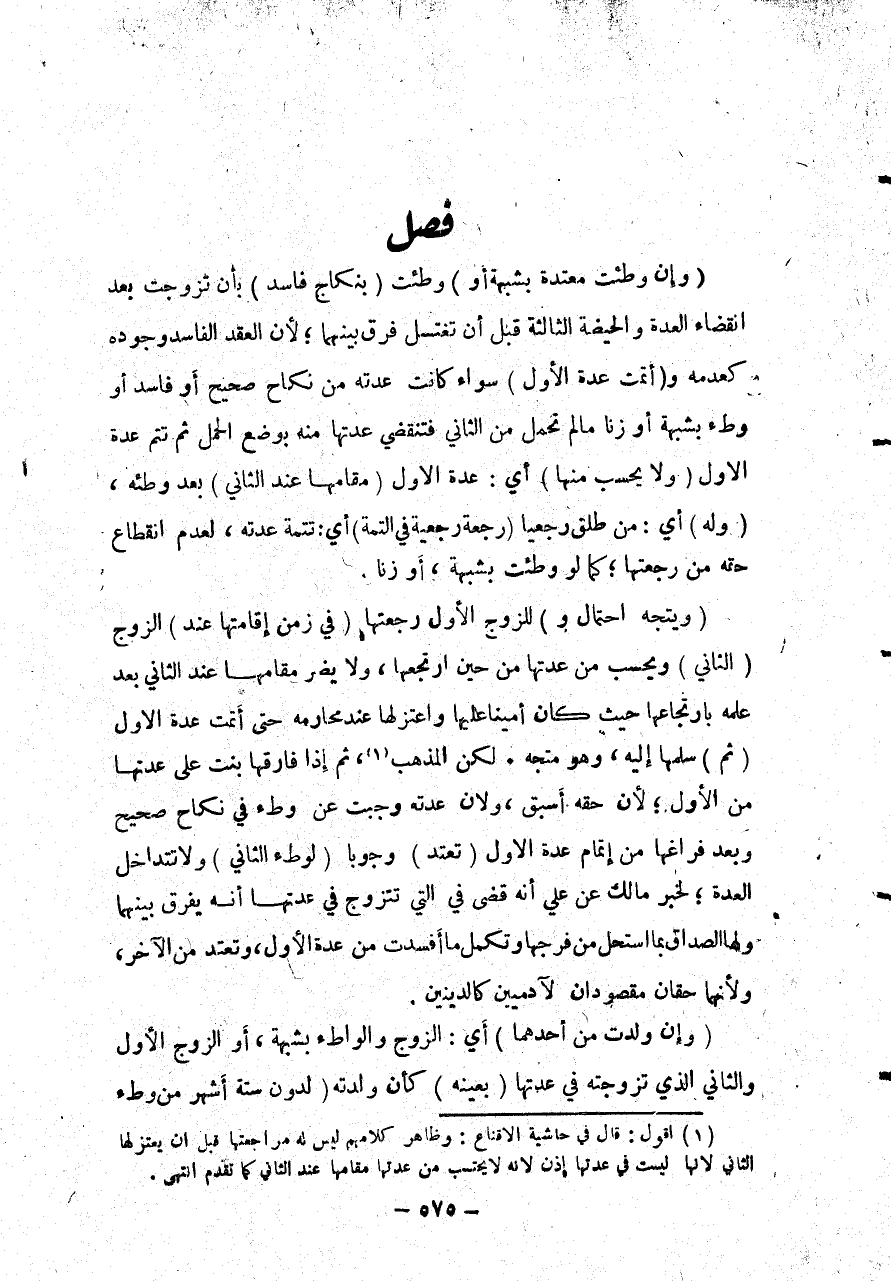 فصل
( وإن وطئت معتدة بشبهة أو ) وطئت ( بنكاح فاسد ) بأن تزوجت بعد
انقضاء العدة والحيضة الثالثة قبل أن تغتسل فرق بينهما ؛ لأن العقد الفاسد وجوده
كعدمه و( أتمت عدة الأول ) سواء كانت عدته من نكاح صحيح أو فاسد أو
وطء بشبهة أو زنا مالم تحمل من الثاني فتنقضي عدتها منه بوضع الحمل ثم تتم عدة
الاول ( ولا يحسب منها ) أي : عدة الاول ( مقامها عند الثاني ) بعد وطئه ،
( وله ) أي : من طلق رجعيا ( رجعة رجعية في التتمة ) أي : تتمة عدته ، لعدم انقطاع
حقه من رجعتها ؛ كما لو وطئت بشبهة ، أو زنا .
( ويتجه احتمال و ) للزوج الأول رجعتها ( في زمن إقامتها عند ) الزوج
( الثاني ) ويحسب من عدتها من حين ارتجعها ، ولا يضر مقامها عند الثاني بعد
علمه بارتجاعها حيث كان أمينا عليها واعتزلها عند محارمه حتى أتمت عدة الاول
( ثم ) سلمها إليه ، وهو متجه . لكن المذهب (١) ، ثم إذا فارقها بنت على عدتها
من الأول ؛ لأن حقه أسبق ، ولان عدته وجبت عن وطء في نكاح صحيح
وبعد فراغها من إتمام عدة الاول ( تعتد ) وجوبا ( لوطء الثاني ) ولا تتداخل
العدة ؛ لخبر مالك عن علي أنه قضى في التي تتزوج في عدتها أنه يفرق بينهما
ولها الصداق بما استحل من فرجها وتكمل ما أفسدت من عدة الأول ، وتعتد من الآخر ،
ولأنها حقان مقصودان لآدميين كالدينين .
( وإن ولدت من أحدهما ) أي : الزوج والواطء بشبهة ، أو الزوج الأول
والثاني الذي تزوجته في عدتها ( بعينه ) كأن ولدته ( لدون ستة أشهر من وطء
(١) اقول : قال في حاشية الاقناع : وظاهر كلامهم ليس له مراجعتها قبل ان يعتزلها
الثاني لانها ليست في عدتها إذن لانه لايحتسب من عدتها مقامها عند الثاني كما تقدم انتهى .
– ٥٧٥ –